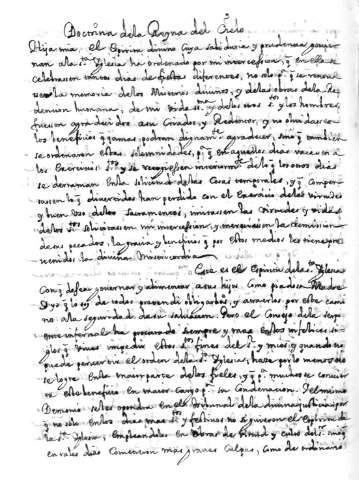 Doctrina dela Reyna del Cielo
Hija mia, el Espiritu divino cuya sabiduria y prudencia gouier
nan ala S.ta Iglesia ha ordenado por mi intercession, q en ella se
celebrassen tantos dias de fiestas diferentes, no solo p.a q se renoua
sse la memoria delos Misterios divinos, y delas obras dela Re
dencion humana, de mi Vida S.ma y delos otros S.tos y los hombres
fuessen agradecidos asu Criador, y Redentor, y no oluidassen
los beneficios q jamas podran dignamente agradecer, sino q tambien
se ordenaron estas solemnidades, p.a q en aquellos dias vacassen a
los Exercicios S.tos y se recogiessen interiorm.te delo q los otros dias
se derraman en la solicitud delas Cosas temporales, y q Compen
sassen lo q diuertidos han perdido con el Exercicio delas virtudes
y buen vso delos Sacramentos, imitassen las virtudes y vidas
delos S.tos solicitassen mi intercession, y mereciessen la Remission
de sus pecados, la gracia y beneficios q por estos medios les tiene pre
venidos la divina Misericordia
Este es el Espiritu dela S.ta Iglesia
Con q desea gouernar y alimentar a sus hijos Como piadosa Madre
Y yo q lo soy de todos pretendi obligarlos, y atraerlos por este cami
no ala seguridad de su saluacion. Pero el Consejo dela Serpi
ente infernal ha procurado siempre y mas en los infelices si
glos q viues impedir estos S.tos fines del S.r y mios, y quando no
puede pervertir el orden dela S.ta Iglesia, haze por lo menos no
se logre en la maior parte delos fieles, y q p.a muchos se convier
ta este beneficio en maior Cargo p.a su Condenacion. El mismo
Demonio se les opondra en el Tribunal dela divina justicia por
q no solo en los dias mas S.tos y festiuos no siguieron el Espiritu de
la S.ta Iglesia, empleandolos en obras de virtud y culto del S.r sino q
en tales dias Cometieron mas graues Culpas, Como de ordinario